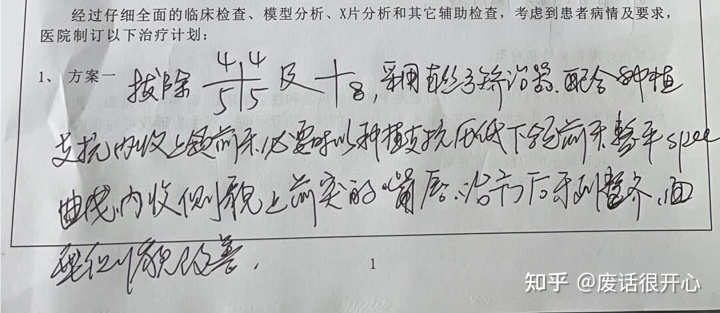 经过仔细全面的临床检查、模型分析、X片分析和其它辅助检查，考虑到患者病情及要求，
医院制订以下治疗计划：
1、方案一 拔除 4|4 5|5 及 +8，采用直丝弓矫治器，配合种植
支抗内收上颌前牙，必要时以种植支抗压低下颌前牙，整平spee
曲线，内收侧貌上前突的嘴唇，治疗后牙列整齐，面
型侧貌改善。
1
知乎 @废话很开心